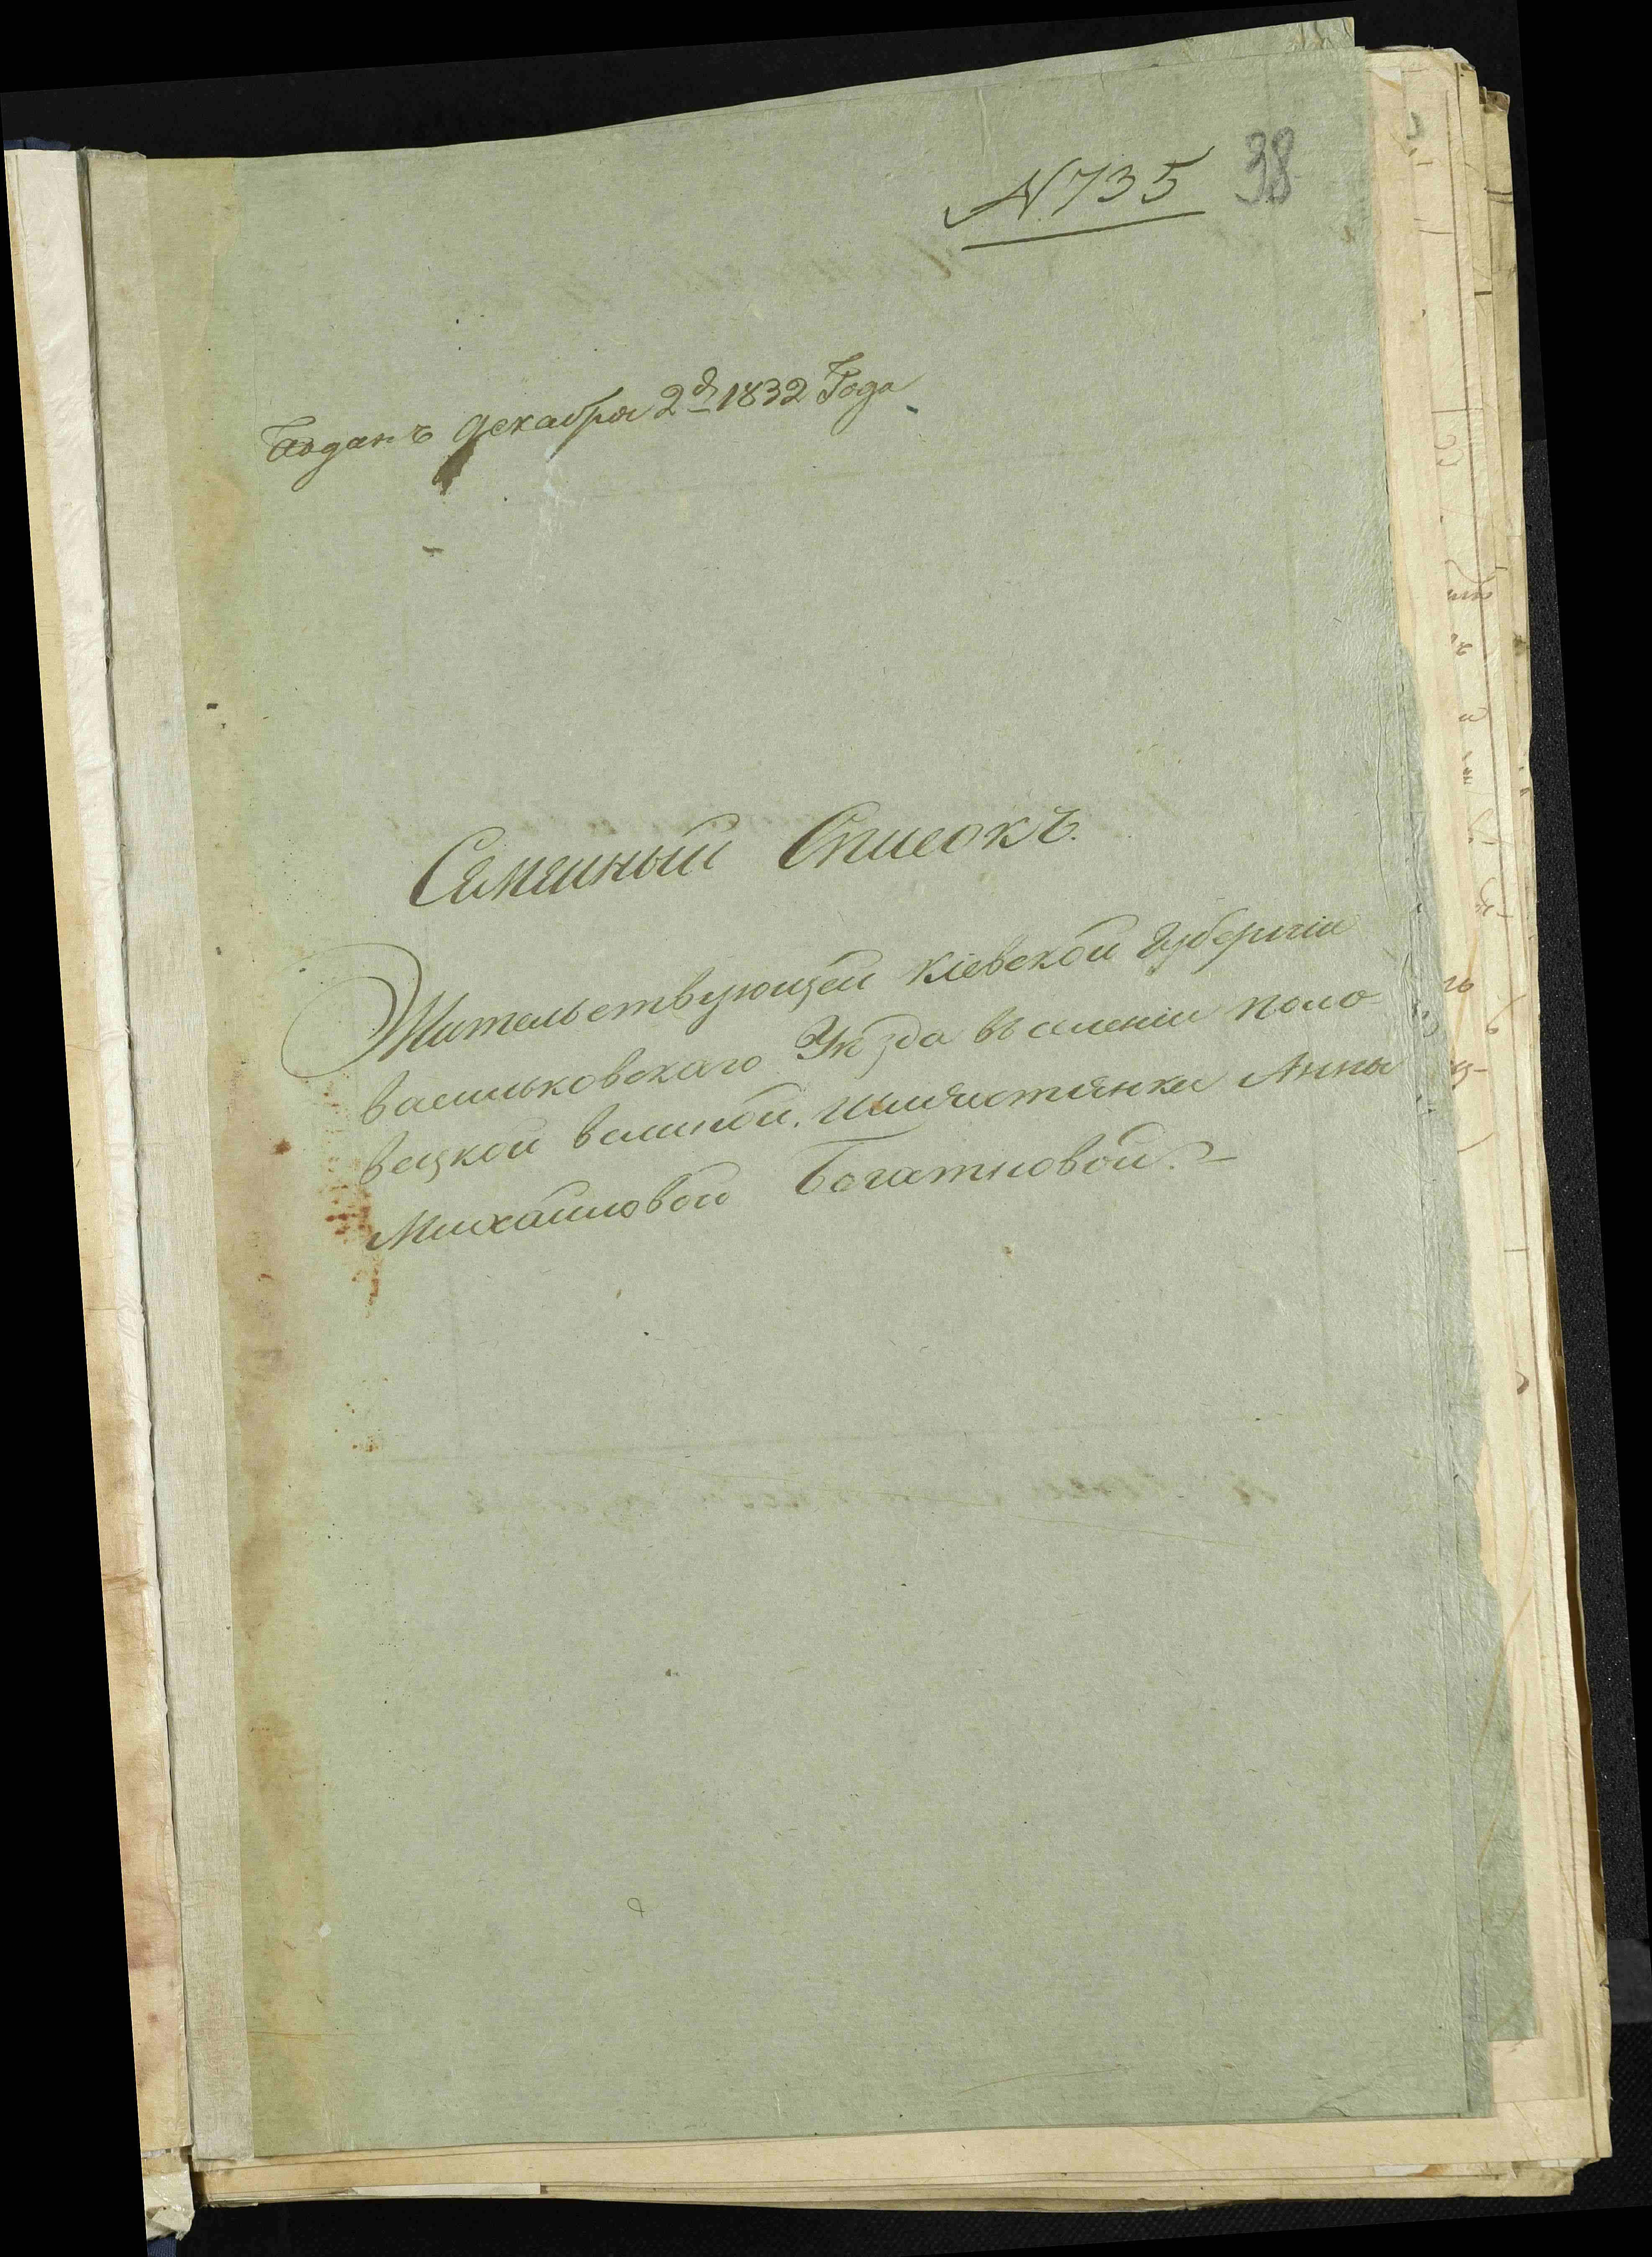 N 735 38
Поданъ декабря 2д 1832 Года
Семеиный Списокъ.
Жительствующей Кіевской Губерніи
Васильковскаго Уѣзда въ селеніи Поло-
вецкой Шляхтянки Анны
Михайловой Богатновой.